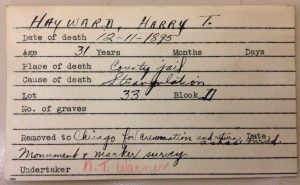 HAYWARD, HARRY T.
Date of death 12-11-1895
Age 31 Years Months Days
Place of death County jail
Cause of death Strangulation
Lot 33 Block 11
No. of graves
Removed to Chicago for cremation and return Date
ashes buried.
Monument & marker survey
Undertaker N. T. Warner